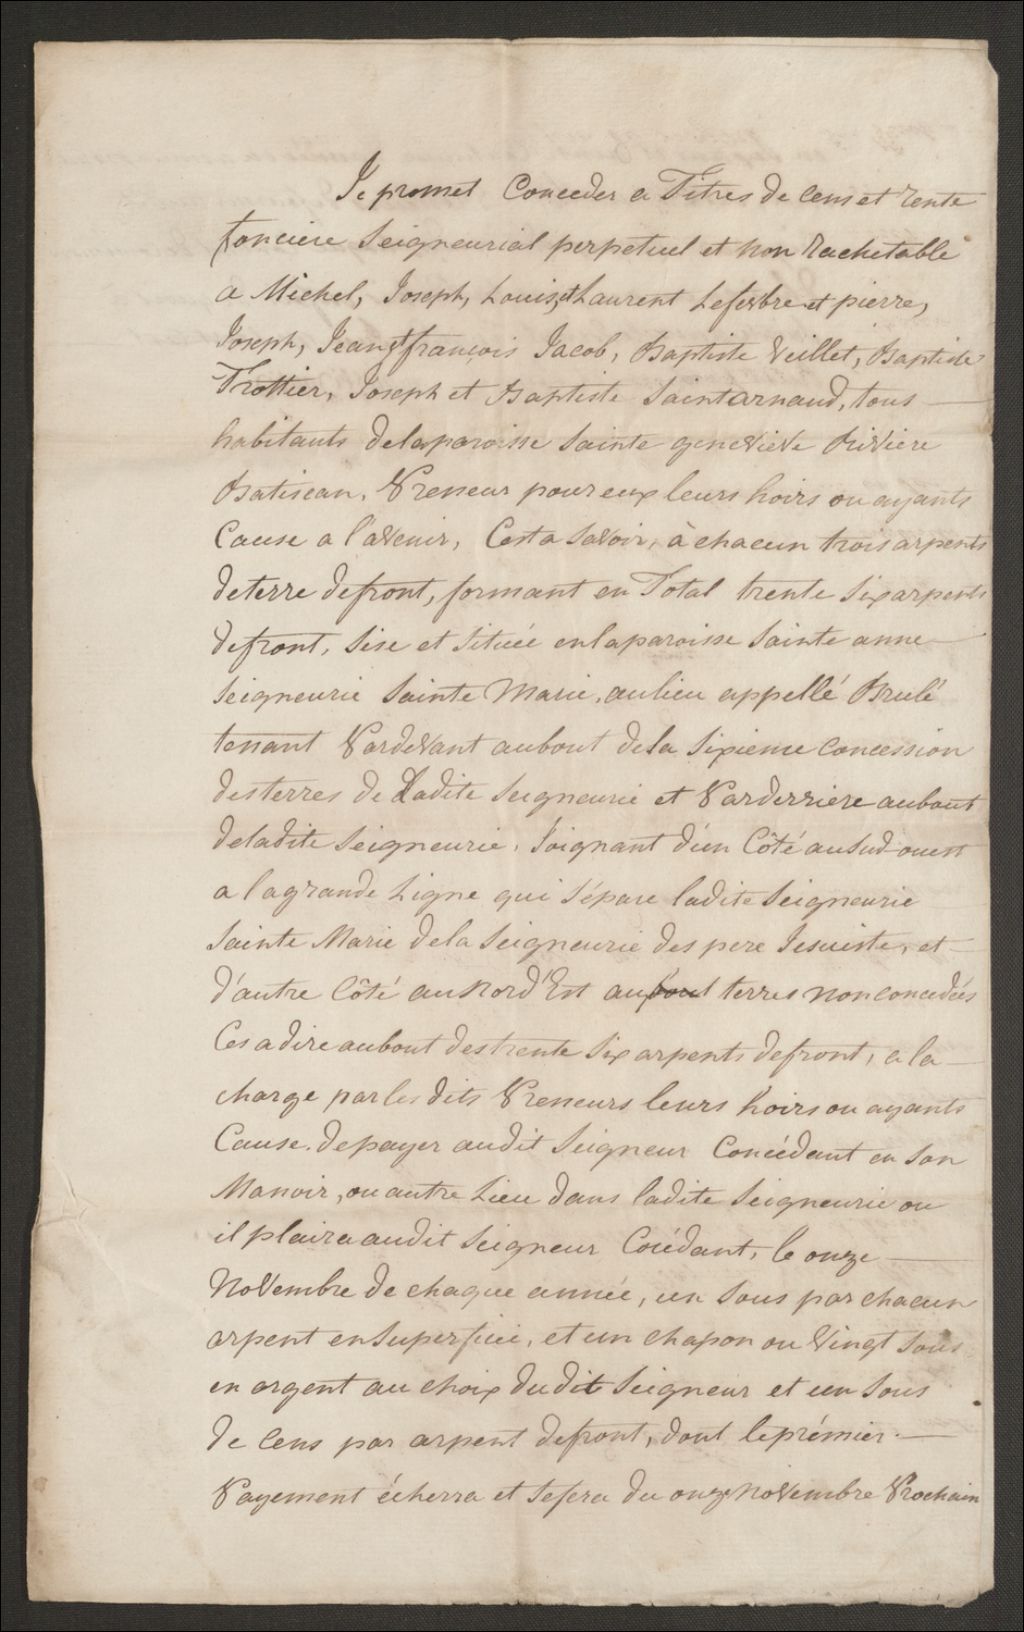 Je promet Conceder a Titres de Cens et rente
fonciere Seigneurial perpetuel et non rachetable
a Michel, Joseph, Louis, et Laurent Lefesbre et pierre,
Joseph, Jean, et françois Jacob, Baptiste Veillet, Baptiste
Trottier, Joseph et Baptiste Saintarnaud, tous
habitants delaparoisse Sainte genevieve Riviere
Batiscan, Preneur pour eux leurs hoirs ou ayants
Cause a l'avenir, Cesta Savoir, à chacun trois arpents
deterre defront, formant en Total trente Six arpents
defront, Sise et Située enlaparoisse Sainte anne
Seigneurie Sainte Marie, aulieu appellé Brulé
tenant Pardevant aubout dela Sixieme Concession
desterres de Ladite Seigneurie et Parderriere aubout
deladite Seigneurie, Joignant d'un Côté auSud-ouest
a lagrande Ligne qui Sépare ladite Seigneurie
Sainte Marie dela Seigneurie des pere Jesuiste, et
d'autre Côté auNord'Est au bout terres nonconcedées
Ces a dire aubout destrente Six arpents defront, a la
charge parles dits Preneurs leurs hoirs ou ayants
Cause. depayer audit Seigneur Concédant en Son
Manoir, ou autre Lieu dans ladite Seigneurie ou
il plaira audit Seigneur Cocédant, le onze
Novembre de chaque année, un Sous par chacun
arpent enSuperficie, et un chapon ou Vingt Sous
en argent au choix dudit Seigneur et un Sous
de Cens par arpent defront, dont leprémier
Payement écherra et Sefera du onze Novembre Prochain